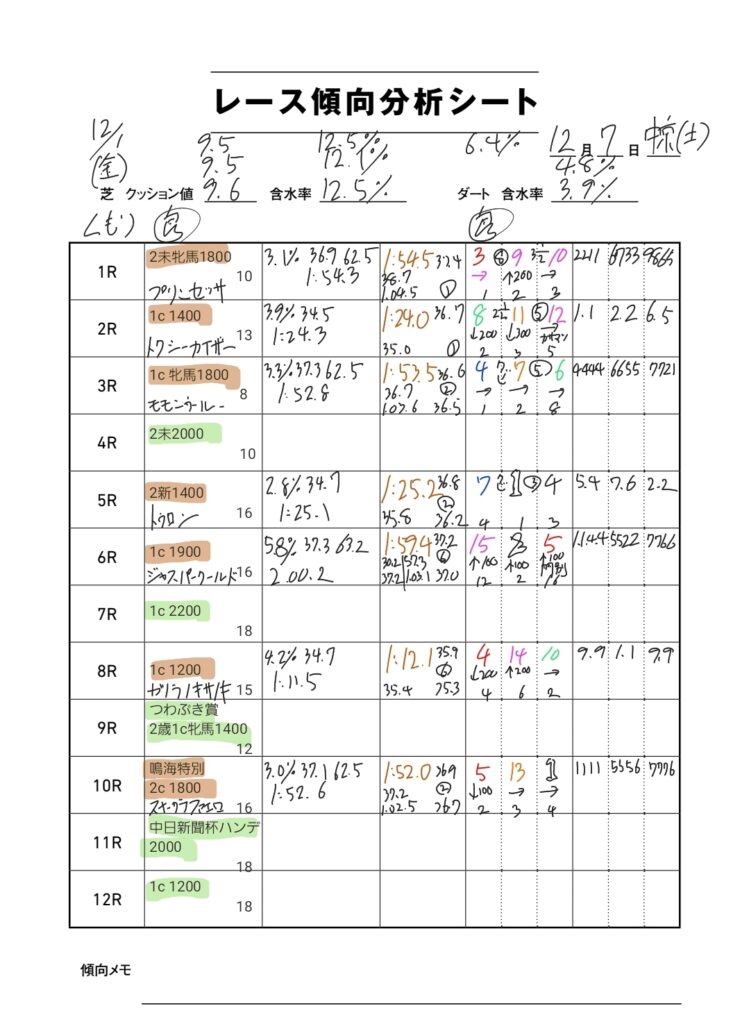 レース傾向分析シート
12/
9.5 12.5% 6.4% 12月7日 (土)
(金) 9.5 4.8%
芝 クッション値 9.6 含水率 12.5% ダート 含水率 3.9%
良 良
1R 2未牝馬1800 10 3.1% 36.9 62.5 1:54.3 1:54.5 38.7 1:04.5 ① 3 9 10 2211 6733 9865
→ ↑200 →
プリンセッサ 1 2 3
2R 1c 1400 13 3.9% 34.5 1:24.3 1:24.0 36.7 35.0 ① 8 11 ⑤ 12 1.1 2.2 6.5
↓200 ↓300
トウシーカイザー 2 3 5
3R 1c 牝馬1800 8 3.3% 37.3 62.5 1:52.8 1:53.5 36.6 36.7 ② 36.5 4 7 ⑤ 6 4444 6655 7721
→ → →
1 2 8
4R 2未2000 10
5R 2新1400 16 2.8% 34.7 1:25.1 1:25.2 36.8 ② 35.8 36.2 7 1 ③ 4 5.4 7.6 2.2
4 1 3
6R 1c 1900 16 5.8% 37.3 1:59.4 37.2 37.0 15 8 5 5522 7766
↑100 ↑100 ↑100
ジャスパーワールド 2.00.2 12 2
7R 1c 2200 18
8R 1c 1200 15 4.2% 34.7 1:11.5 1:12.1 35.9 ⑥ 35.4 35.3 4 14 10 9.9 1.1 9.9
↓200 ↑200 →
4 6 2
9R つわぶき賞
2歳1c牝馬1400 12
10R 鳴海特別
2c 1800 16 3.0% 37.1 62.5 1:52.6 1:52.0 36.9 37.2 ② 1:02.5 36.7 5 13 1 1111 5556 7776
↓100 → →
2 3 4
11R 中日新聞杯ハンデ
2000 18
12R 1c 1200 18
傾向メモ